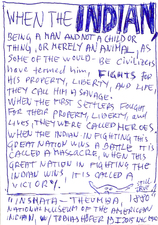 WHEN THE INDIAN,
BEING A MAN AND NOT A CHILD OR
THING, OR MERELY AN ANIMAL, AS
SOME OF THE WOULD-BE CIVILIZERS
HAVE TERMED HIM, FIGHTS FOR
HIS PROPERTY, LIBERTY, AND LIFE,
THEY CALL HIM A SAVAGE.
WHEN THE FIRST SETTLERS FOUGHT
FOR THEIR PROPERTY, LIBERTY, AND
LIVES, THEY WERE CALLED HEROES.
WHEN THE INDIAN IN FIGHTING THIS
GREAT NATION WINS A BATTLE IT IS
CALLED A MASSACRE, WHEN THIS
GREAT NATION IN FIGHTING THE
INDIAN WINS, IT IS CALLED A
VICTORY.
"INSHATA-THEUMBA, 1880"
NATIONAL MUSEUM OF THE AMERICAN
INDIAN,